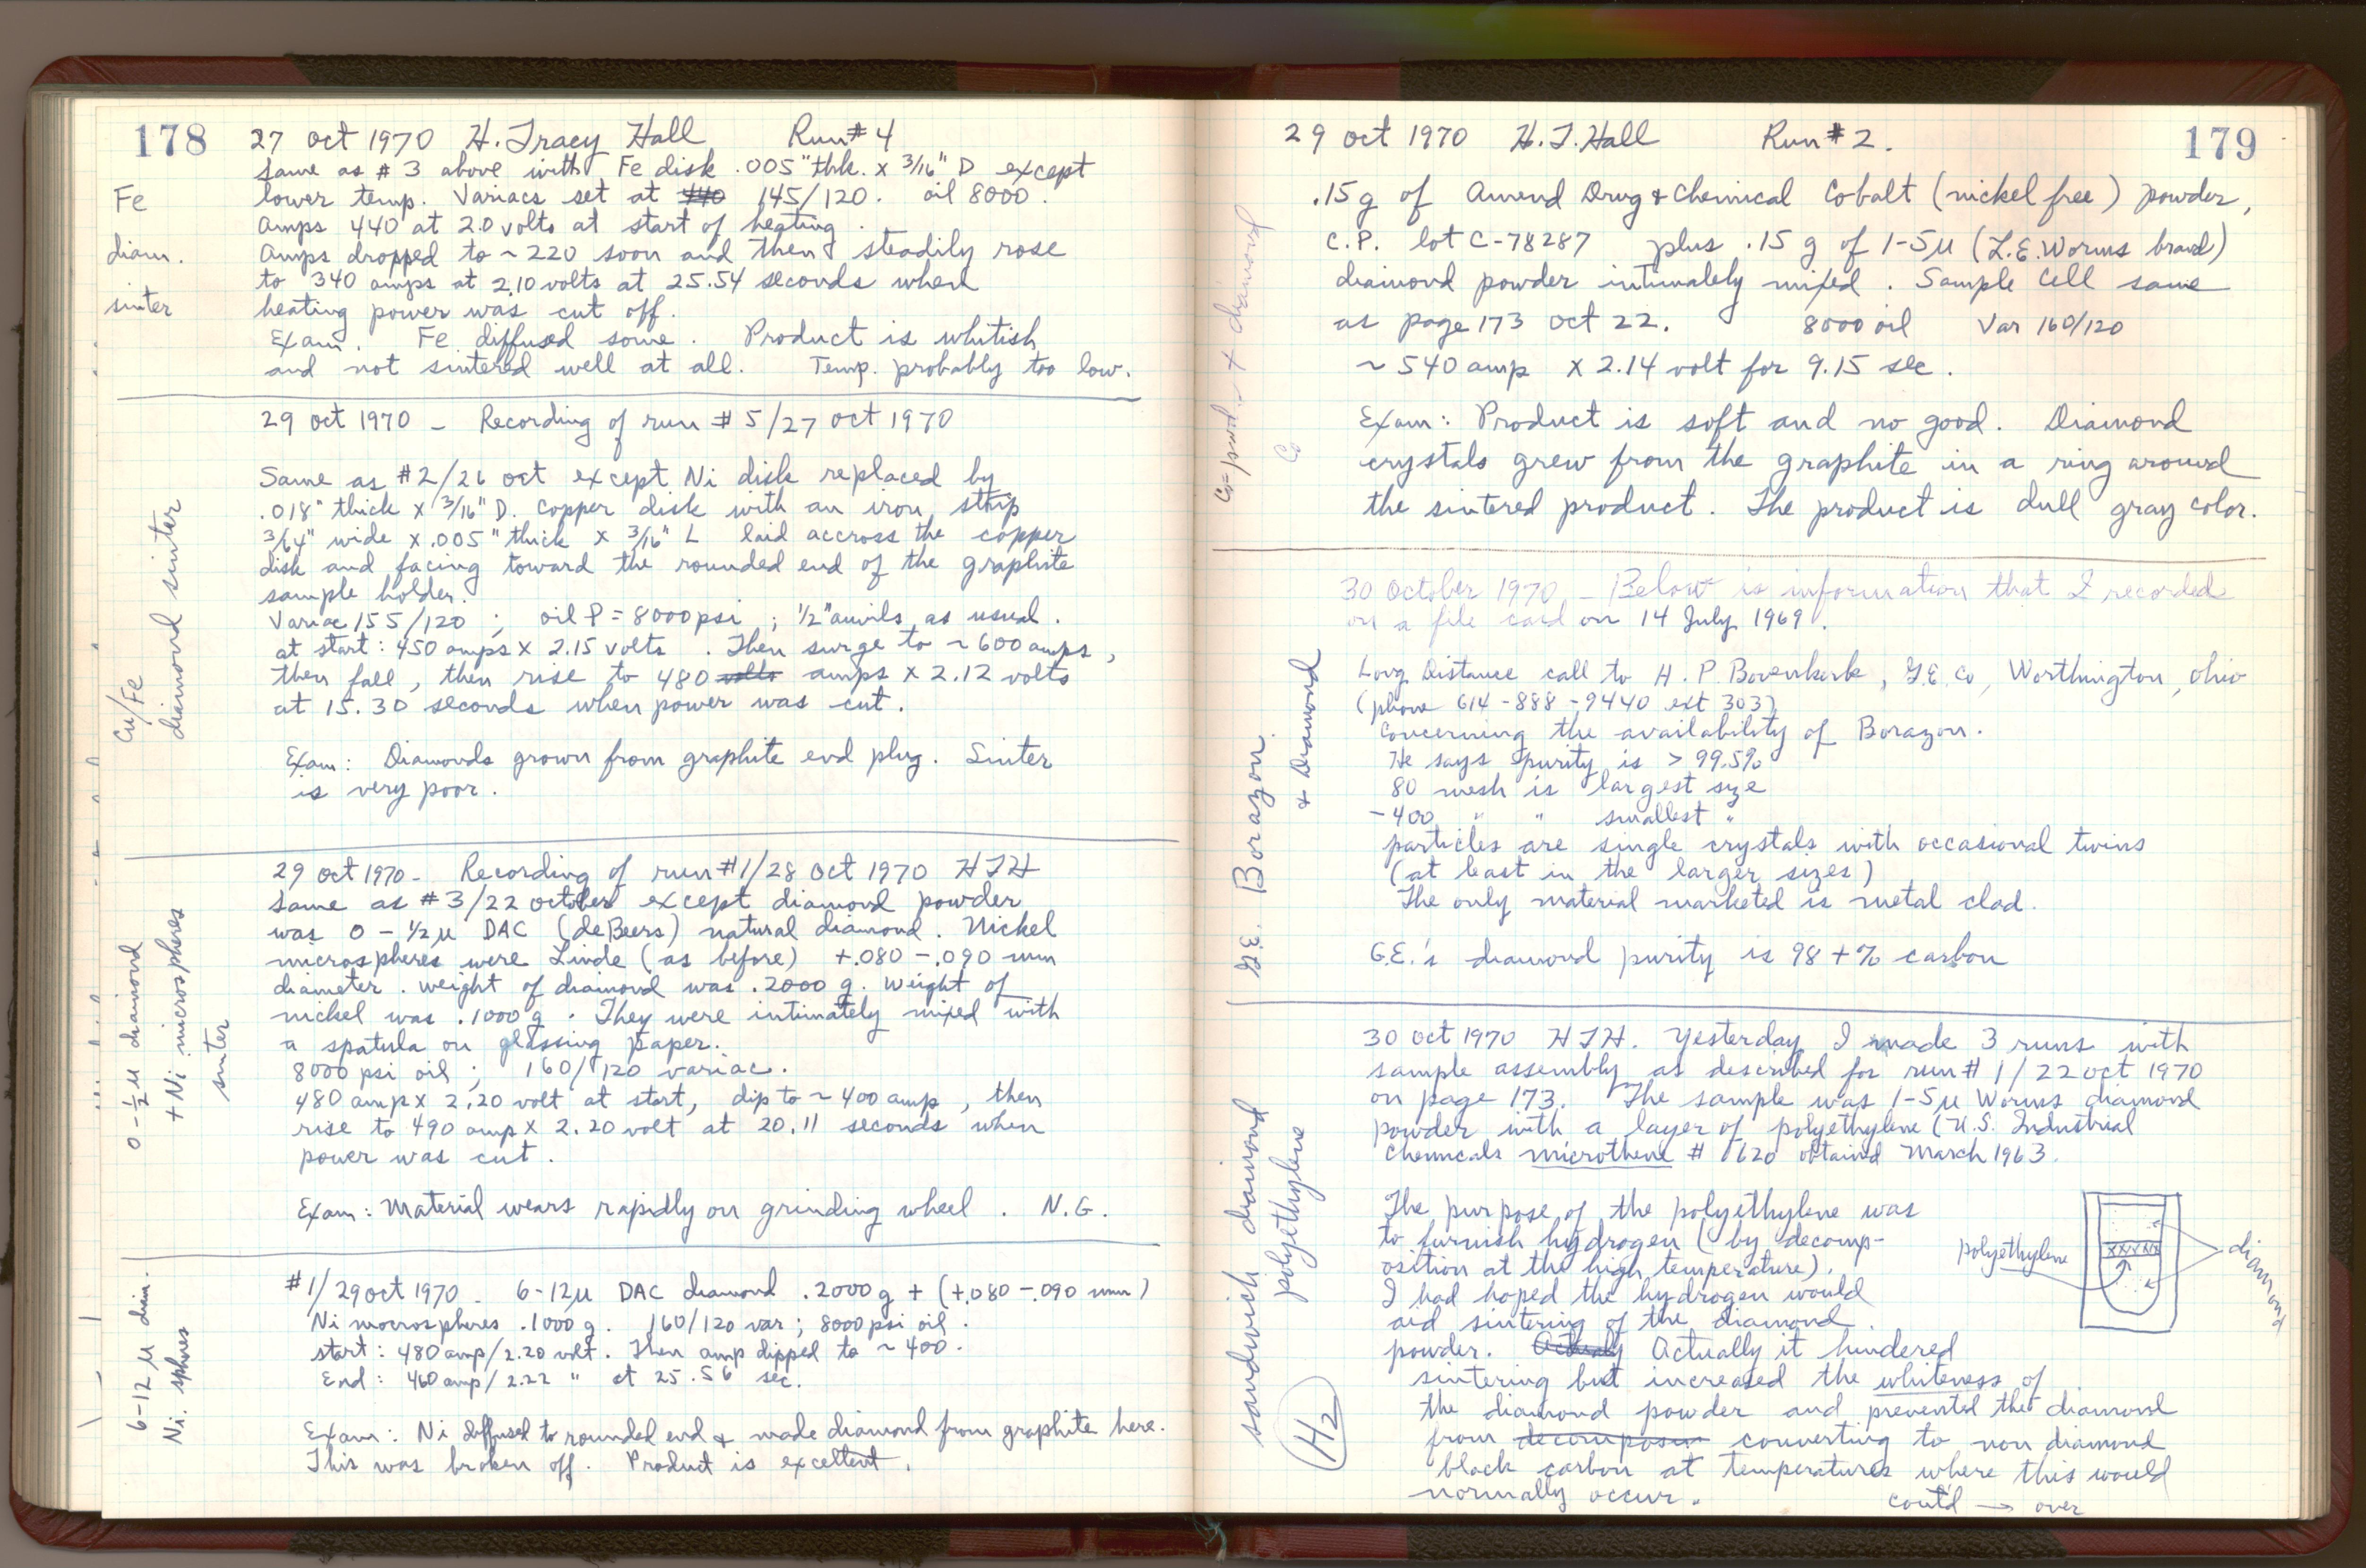 178 27 Oct 1970 H. Tracy Hall Run # 4
Same as # 3 above with Fe disk .005" thk. x 3/16" D except
Fe lower temp. Variacs set at 440 145/120. oil 8000.
Amps 440 at 2.0 volts at start of heating.
diam. Amps dropped to ~ 220 soon and then steadily rose
to 340 amps at 2.10 volts at 25.54 seconds when
sinter heating power was cut off.
Exam. Fe diffused some. Product is whitish
and not sintered well at all. Temp. probably too low.
29 Oct 1970 - Recording of run # 5/27 Oct 1970
Same as #2/26 Oct except Ni disk replaced by
.018" thick x 3/16" D. copper disk with an iron strip
3/64" wide x .005" thick x 3/16" L laid accross the copper
disk and facing toward the rounded end of the graphite
sample holder.
Variac 155/120 ; oil P = 8000 psi ; 1/2" anvils as usual.
at start: 450 amps x 2.15 volts. Then surge to ~ 600 amps,
then fall, then rise to 480 volts amps x 2.12 volts
at 15.30 seconds when power was cut.
Cu/Fe
diamond sinter
Exam: Diamonds grown from graphite end plug. Sinter
is very poor.
29 Oct 1970 - Recording of run #1/28 Oct 1970 HTH
Same as #3/22 October except diamond powder
was 0 - 1/2 μ DAC (deBeers) natural diamond. Nickel
microspheres were Linde (as before) +.080 -.090 mm
diameter. weight of diamond was .2000 g. weight of
nickel was .1000 g. They were intimately mixed with
a spatula on glassing paper.
8000 psi oil ; 160/120 variac.
480 amp x 2.20 volt at start, dip to ~ 400 amp, then
rise to 490 amp x 2.20 volt at 20.11 seconds when
power was cut.
0 - 1/2 μ diamond
+ Ni microspheres
sinter
Exam: Material wears rapidly on grinding wheel. N.G.
#1/29 Oct 1970 - 6-12μ DAC diamond .2000 g + (+.080 -.090 mm)
Ni microspheres .1000 g. 160/120 var ; 8000 psi oil.
start: 480 amp/2.20 volt. Then amp dipped to ~ 400.
End: 460 amp/2.22 " at 25.56 sec.
6-12 μ diam.
Ni. sphres
Exam: Ni diffused to rounded end & made diamond from graphite here.
This was broken off. Product is excellent.
29 Oct 1970 H. T. Hall Run # 2. 179
.15 g of Amend Drug & Chemical Cobalt (nickel free) powder,
C.P. lot C-78287 plus .15 g of 1-5μ (L.E. Worms brand)
diamond powder intimately mixed. Sample cell same
as page 173 Oct 22. 8000 oil Var 160/120
~ 540 amp x 2.14 volt for 9.15 sec.
Co
Exam: Product is soft and no good. Diamond
crystals grew from the graphite in a ring around
the sintered product. The product is dull gray color.
30 October 1970 - Below is information that I recorded
on a file card on 14 July 1969.
Long Distance call to H. P. Bovenkerk, G.E. Co, Worthington, Ohio
(phone 614-888-9440 ext 303)
Concerning the availability of Borazon.
He says purity is > 99.5%
80 mesh is largest size
-400 " " smallest "
particles are single crystals with occasional twins
(at least in the larger sizes)
The only material marketed is metal clad.
G.E.'s diamond purity is 98+% carbon
G.E. Borazon
& Diamond
30 Oct 1970 HTH. Yesterday I made 3 runs with
sample assembly as described for run # 1/22 Oct 1970
on page 173. The sample was 1-5μ Worms diamond
powder with a layer of polyethylene (U.S. Industrial
Chemicals microthene # 620 obtaind March 1963.
The purpose of the polyethylene was
to furnish hydrogen (by decomp-
osition at the high temperature).
I had hoped the hydrogen would
aid sintering of the diamond
powder. Actualy Actually it hindered
sintering but increased the whiteness of
the diamond powder and prevented the diamond
from converting to non diamond
black carbon at temperatures where this would
normally occur. cont'd → over
sandwich diamond
polyethylene
H2
polyethylene
diamond